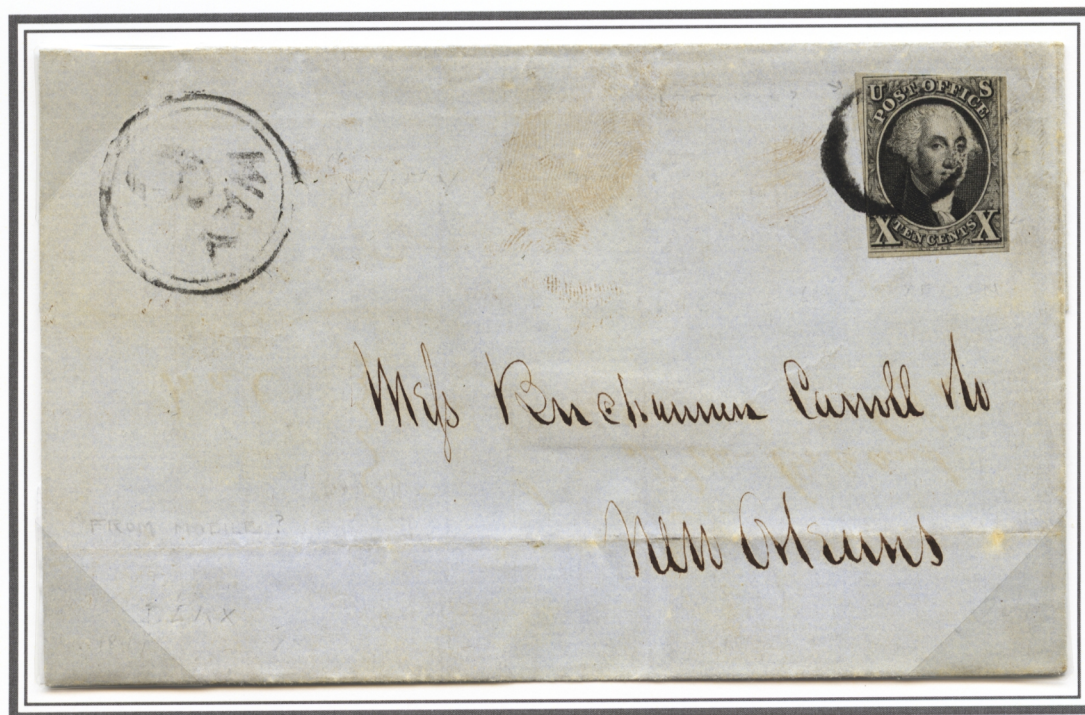 MAY
U S
POST OFFICE
X TEN CENTS X
Mess Buchannan Carroll & Co
New Orleans
FROM MOBILE ?